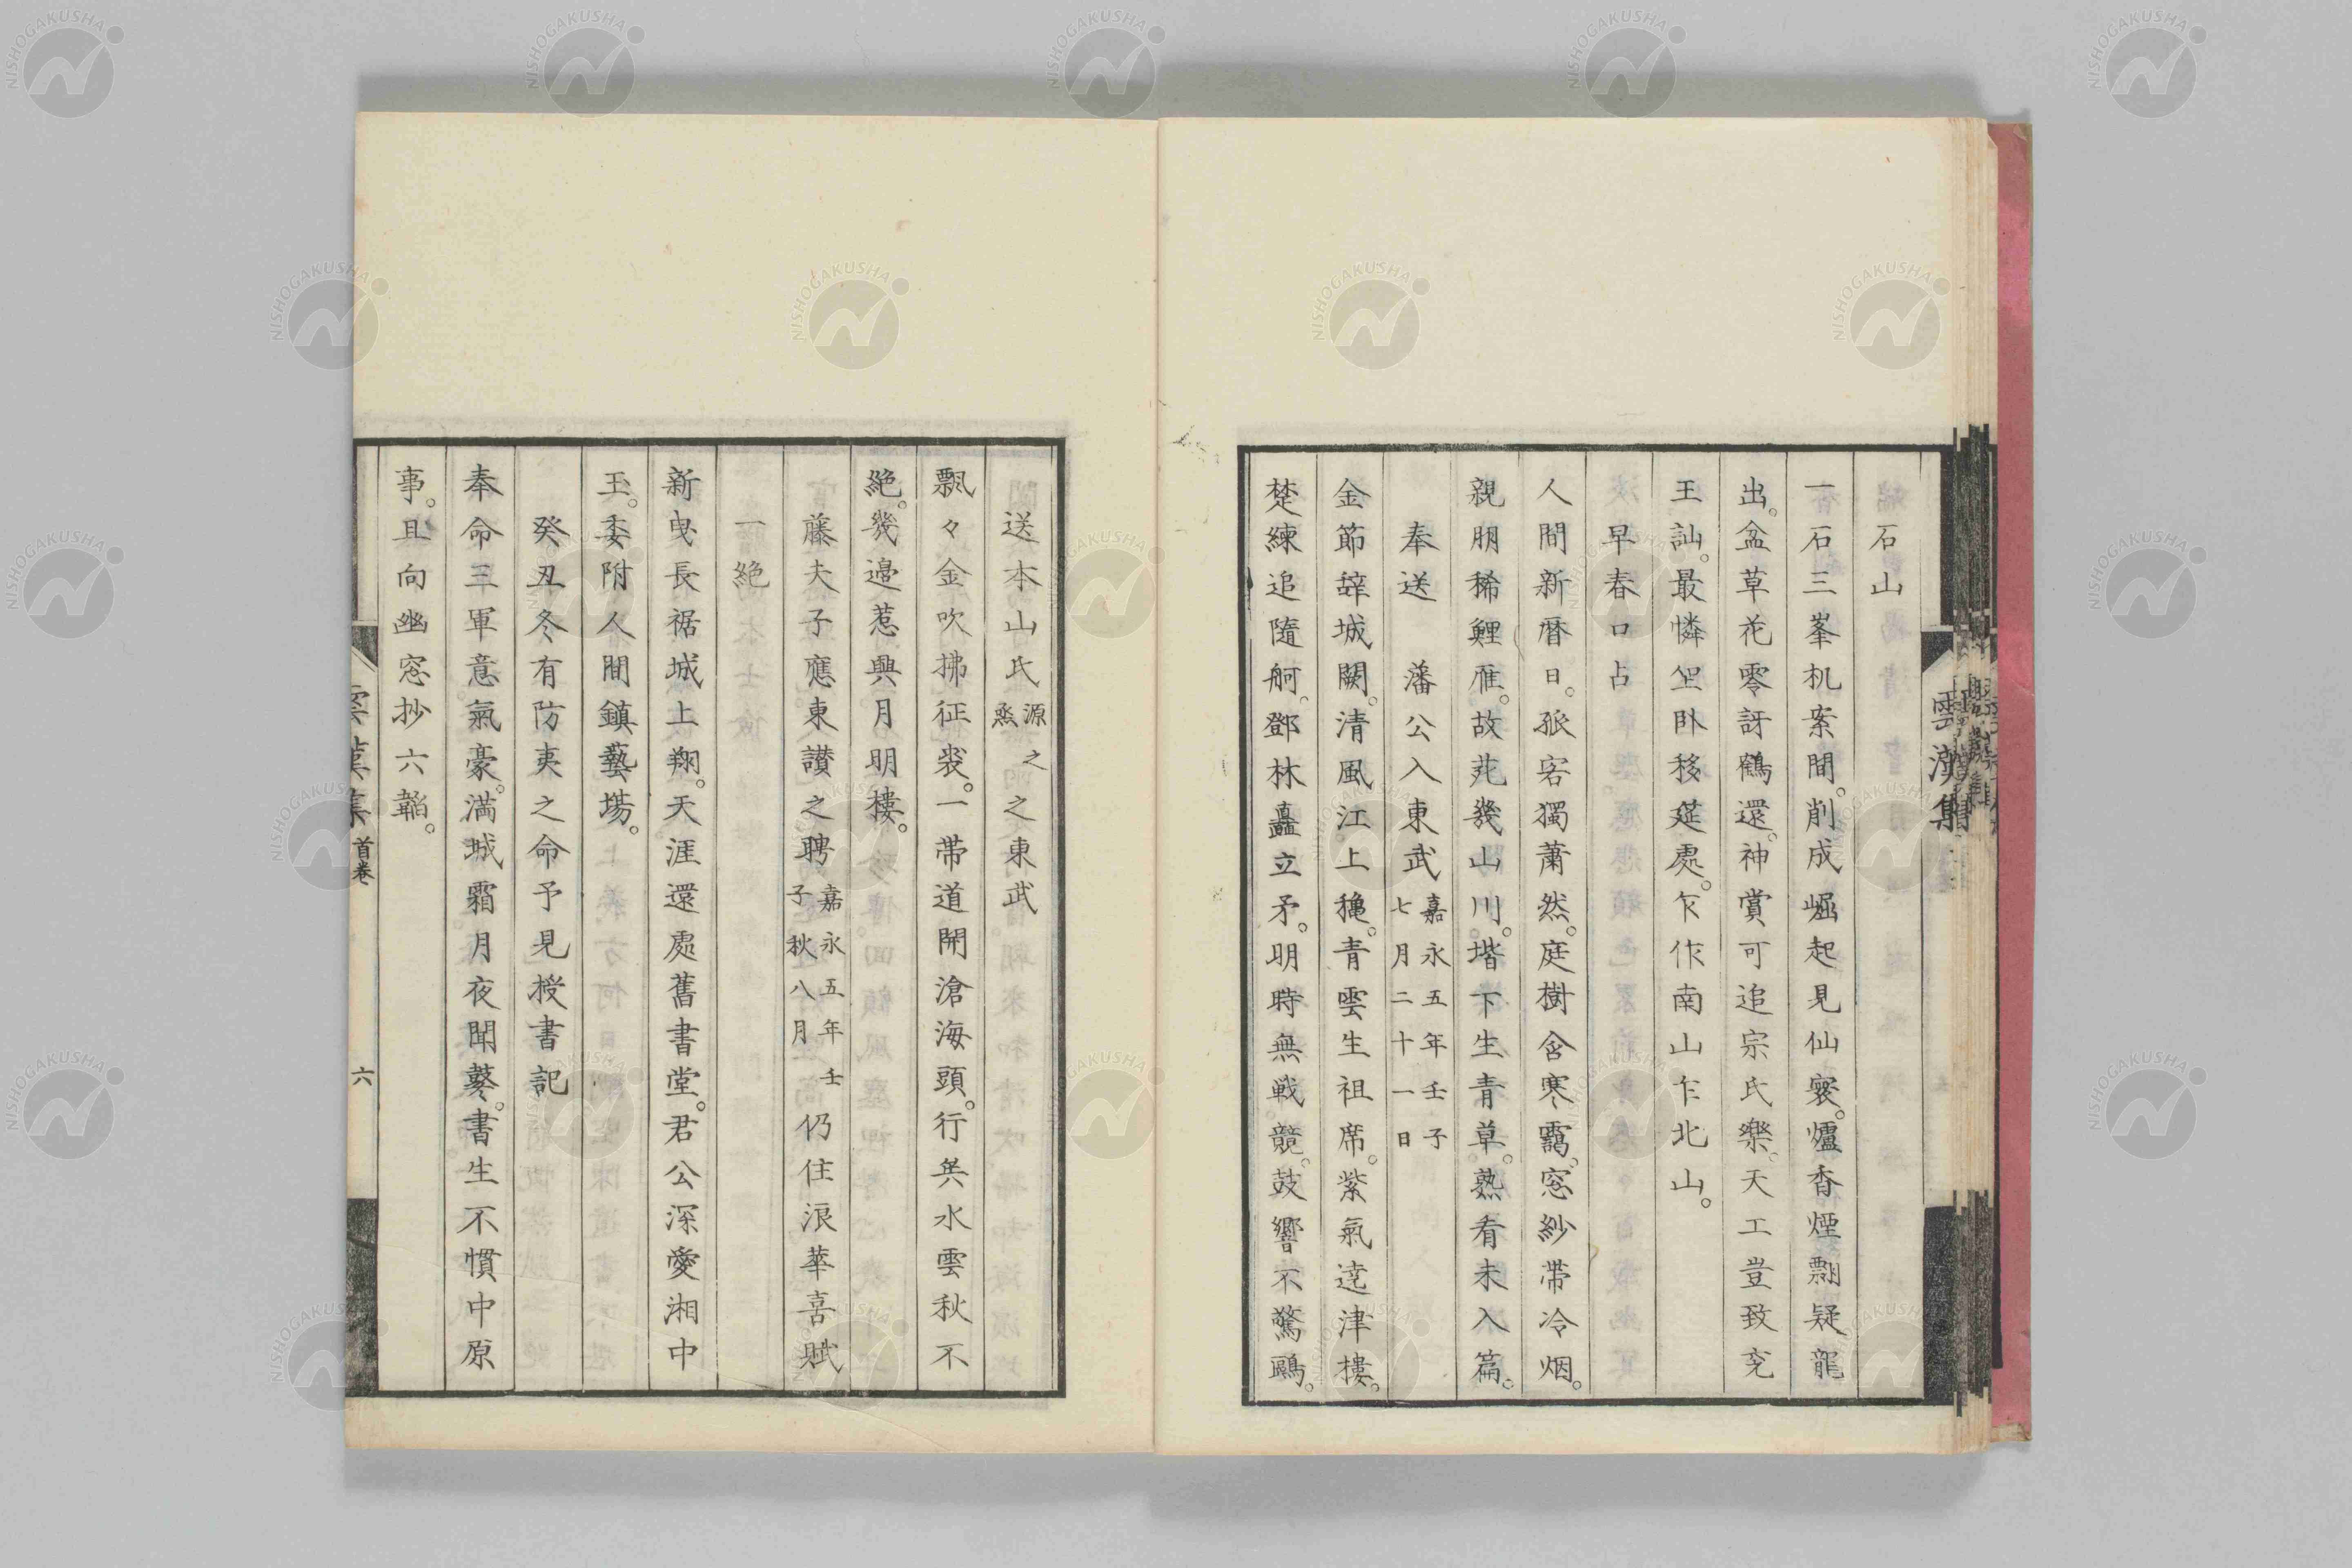 石山
一石三峯机案間。削成崛起見仙寰。爐香煙飄疑龍
出。盆草花零訝鶴還。神賞可追宗氏樂。天工豈致兗
王訕。最憐坐臥移莚處。乍作南山乍北山。
早春口占
人間新曆日。孤客獨蕭然。庭樹含寒靄。窓紗帯冷烟。
親朋稀鯉雁。故苑幾山川。堦下生青草。熟看未入篇。
奉送 藩公入東武嘉永五年壬子七月二十一日
金節辞城闕。清風江上穐。青雲生祖席。紫氣逹津樓。
楚練追隨舸。鄧林矗立矛。明時無戦競。鼓響不驚鷗。
雲漢集
送本山氏源之烝之東武
飄々金吹拂征裘。一帯道開滄海頭。行矣水雲秋不
絶。幾邉惹興月明樓。
藤夫子應東讃之聘嘉永五年壬子秋八月仍住浪華喜賦
一絶
新曳長裾城上翔。天涯還處舊書堂。君公深愛湘中
玉。委附人間鎮藝場。
癸丑冬有防夷之命予見授書記
奉命三軍意氣豪。満城霜月夜聞鼛。書生不慣中原
事。且向幽窓抄六韜。
雲漢集 首巻 六
NISHOGAKUSHA